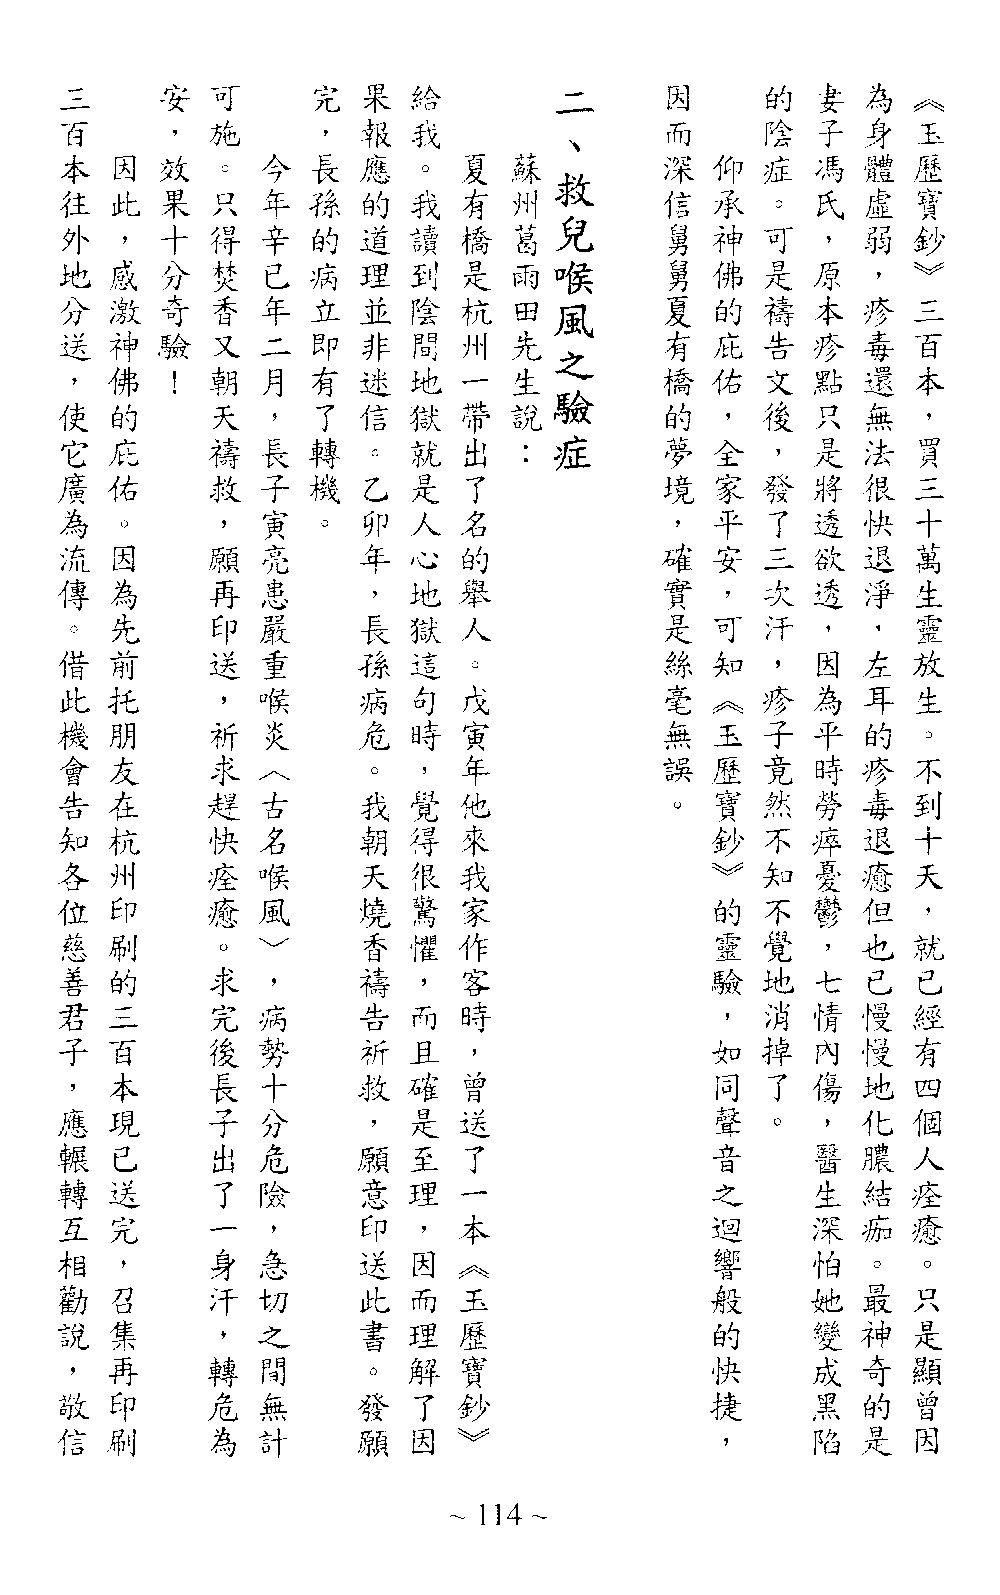 《玉歷寶鈔》三百本，買三十萬生靈放生。不到十天，就已經有四個人痊癒。只是顯曾因
為身體虛弱，疹毒還無法很快退淨，左耳的疹毒退癒但也已慢慢地化膿結痂。最神奇的是
妻子馮氏，原本疹點只是將透欲透，因為平時勞瘁憂鬱，七情內傷，醫生深怕她變成黑陷
的陰症。可是禱告文後，發了三次汗，疹子竟然不知不覺地消掉了。
仰承神佛的庇佑，全家平安，可知《玉歷寶鈔》的靈驗，如同聲音之迴響般的快捷，
因而深信舅舅夏有橋的夢境，確實是絲毫無誤。
二、救兒喉風之驗症
蘇州葛雨田先生說：
夏有橋是杭州一帶出了名的舉人。戊寅年他來我家作客時，曾送了一本《玉歷寶鈔》
給我。我讀到陰間地獄就是人心地獄這句時，覺得很驚懼，而且確是至理，因而理解了因
果報應的道理並非迷信。乙卯年，長孫病危。我朝天燒香禱告祈救，願意印送此書。發願
完，長孫的病立即有了轉機。
今年辛已年二月，長子寅亮患嚴重喉炎（古名喉風），病勢十分危險，急切之間無計
可施。只得焚香又朝天禱救，願再印送，祈求趕快痊癒。求完後長子出了一身汗，轉危為
安，效果十分奇驗！
因此，感激神佛的庇佑。因為先前托朋友在杭州印刷的三百本現已送完，召集再印刷
三百本往外地分送，使它廣為流傳。借此機會告知各位慈善君子，應輾轉互相勸說，敬信
~ 114 ~